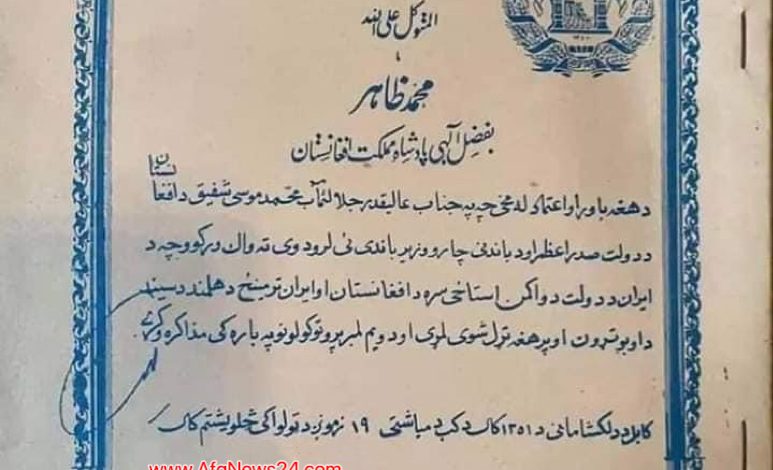 المتوکل علی الله
محمد ظاهر
بفضل الهی پادشاه مملکت افغانستان
د هغه باور او اعتماد له مخی چه په جناب عالیقدر جلالتمآب محمد موسی شفیق د افغانستان
د دولت صدراعظم او د باندنی چارو وزیر باندی ئی لرو دوی ته واک ورکوو چه د
ایران د دولت د واکمن استاځی سره د افغانستان او ایران ترمینځ د هلمند د سیند
د اوبو تړون او پر هغه تړل شوی لمړی او دویم لمبر پروتوکولونو په باره کی مذاکره وکړی
کابل د دلکشا مانۍ د ۱۳۵۱ کال د کب د میاشتی ۱۹ نهه وز د ټولواکۍ څلویښتم کال
www.AfgNews24.com